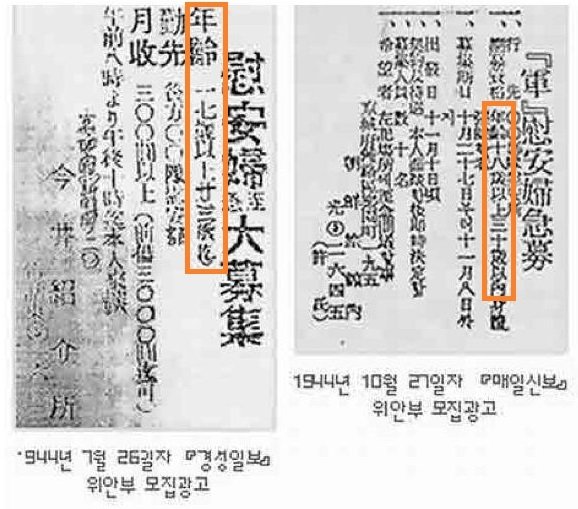 慰安婦至急大募集
年齢 一七歳以上廿三歳迄
勤先 後方〇〇隊慰安部
月收 三〇〇圓以上(前借三〇〇〇圓迄可)
午前八時より午後十時迄本人來談
今井紹介所
『軍』慰安婦急募
一、行先
年齢十八歳以上三十歳以內
一、募集期日 十月二十七日 十一月八日
一、出發日 十一月十日頃
一、契約及待遇 本人面談後即時決定
一、募集人員 數十名
一、希望者 左記場所
朝鮮旅館內
光③二六四五
(許氏)
1944년 7월 26일자 『경성일보』
위안부 모집광고
1944년 10월 27일자 『매일신보』
위안부 모집광고